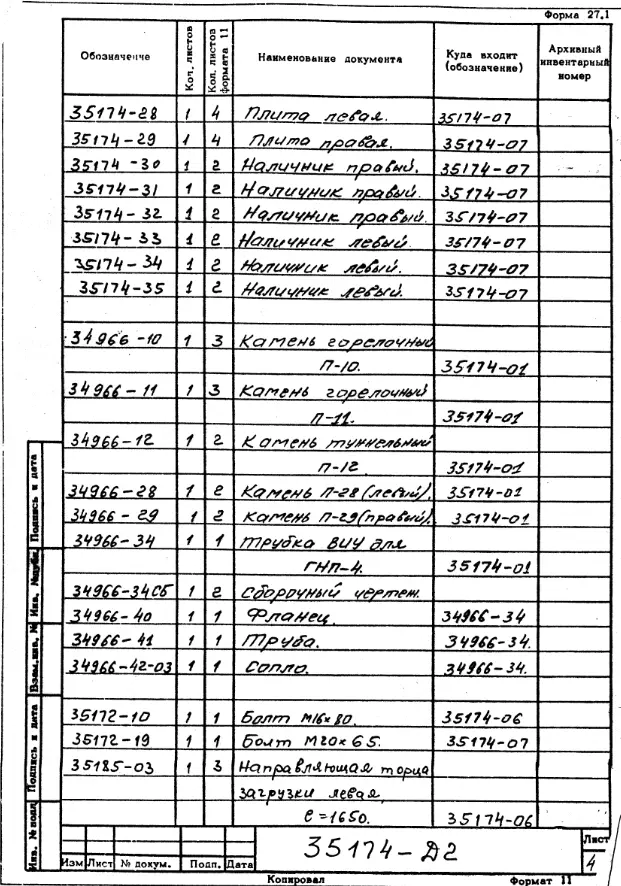 Форма 27.1
Обозначение Кол. листов Кол. листов формата 11 Наименование документа Куда входит (обозначение) Архивный инвентарный номер
35174-28 1 4 Плита левая. 35174-07
35174-29 1 4 Плита правая. 35174-07
35174-30 1 2 Наличник правый. 35174-07
35174-31 1 2 Наличник правый. 35174-07
35174-32 1 2 Наличник правый. 35174-07
35174-33 1 2 Наличник левый. 35174-07
35174-34 1 2 Наличник левый. 35174-07
35174-35 1 2 Наличник левый. 35174-07
34966-10 1 3 Камень горелочный
П-10. 35174-01
34966-11 1 3 Камень горелочный
П-11. 35174-01
34966-12 1 2 Камень туннельный
П-12 35174-01
34966-28 1 2 Камень П-28 (левый). 35174-01
34966-29 1 2 Камень П-29 (правый). 35174-01
34966-34 1 1 Трубка ВИУ для
ГНП-4. 35174-01
34966-34СБ 1 2 Сборочный чертеж.
34966-40 1 1 Фланец. 34966-34
34966-41 1 1 Труба. 34966-34.
34966-42-03 1 1 Сопло. 34966-34.
35172-10 1 1 Болт М16х80. 35174-06
35172-19 1 1 Болт М20х65. 35174-07
35185-03 1 3 Направляющая торца
загрузки левая,
ℓ=1650. 35174-06
Инв. № подл Подпись и дата Взам. инв. № Инв. № дубл. Подпись и дата
Изм Лист № докум. Подп. Дата
35174-Д2
Лист
4
Копировал Формат 11